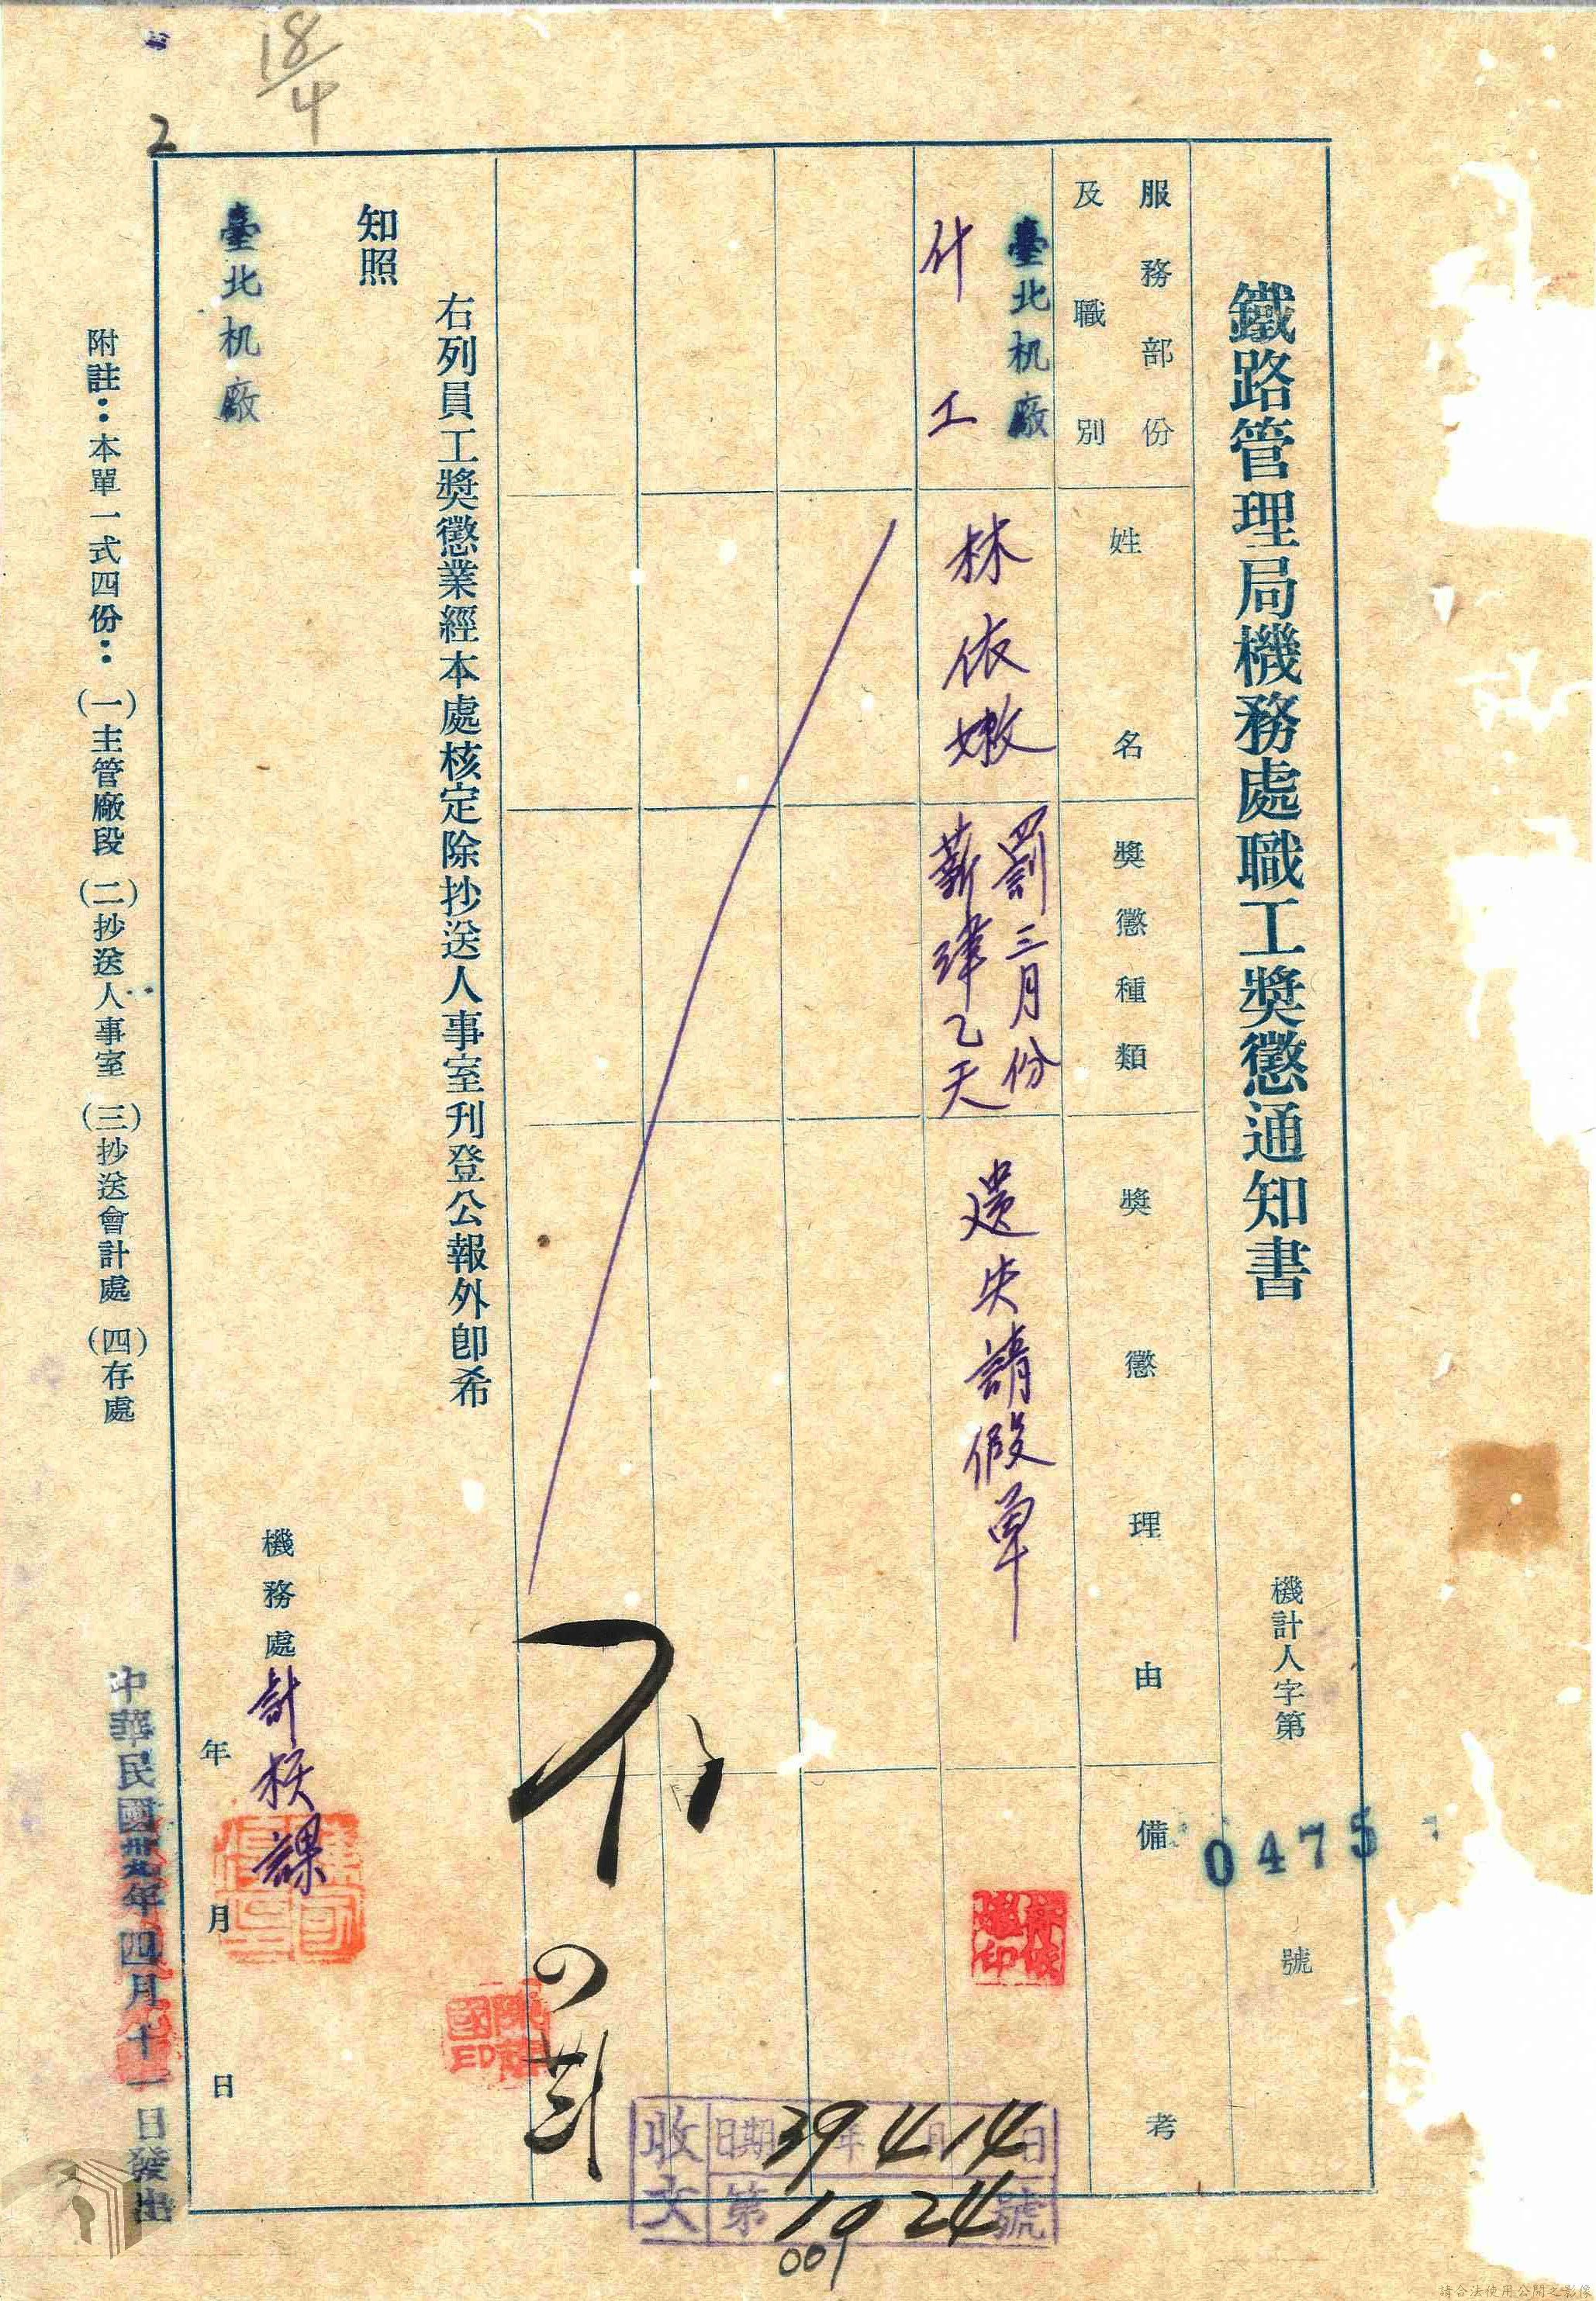 鐵路管理局機務處職工獎懲通知書
機計人字第 0475 號
服務部份
及職別
姓名
獎懲種類
獎懲理由
備考
臺北机廠
什工
林依嫩
罰三月份
薪津乙天
遺失請假單
右列員工獎懲業經本處核定除抄送人事室刊登公報外卽希
知照
臺北机廠
機務處計核課
年 月 日
附註：本單一式四份：(一)主管廠段 (二)抄送人事室 (三)抄送會計處 (四)存處
中華民國卅九年四月十一日發出
收文
日期 39年4月14日
第 1024 號
001
18/4
2
請合法使用公開之影像